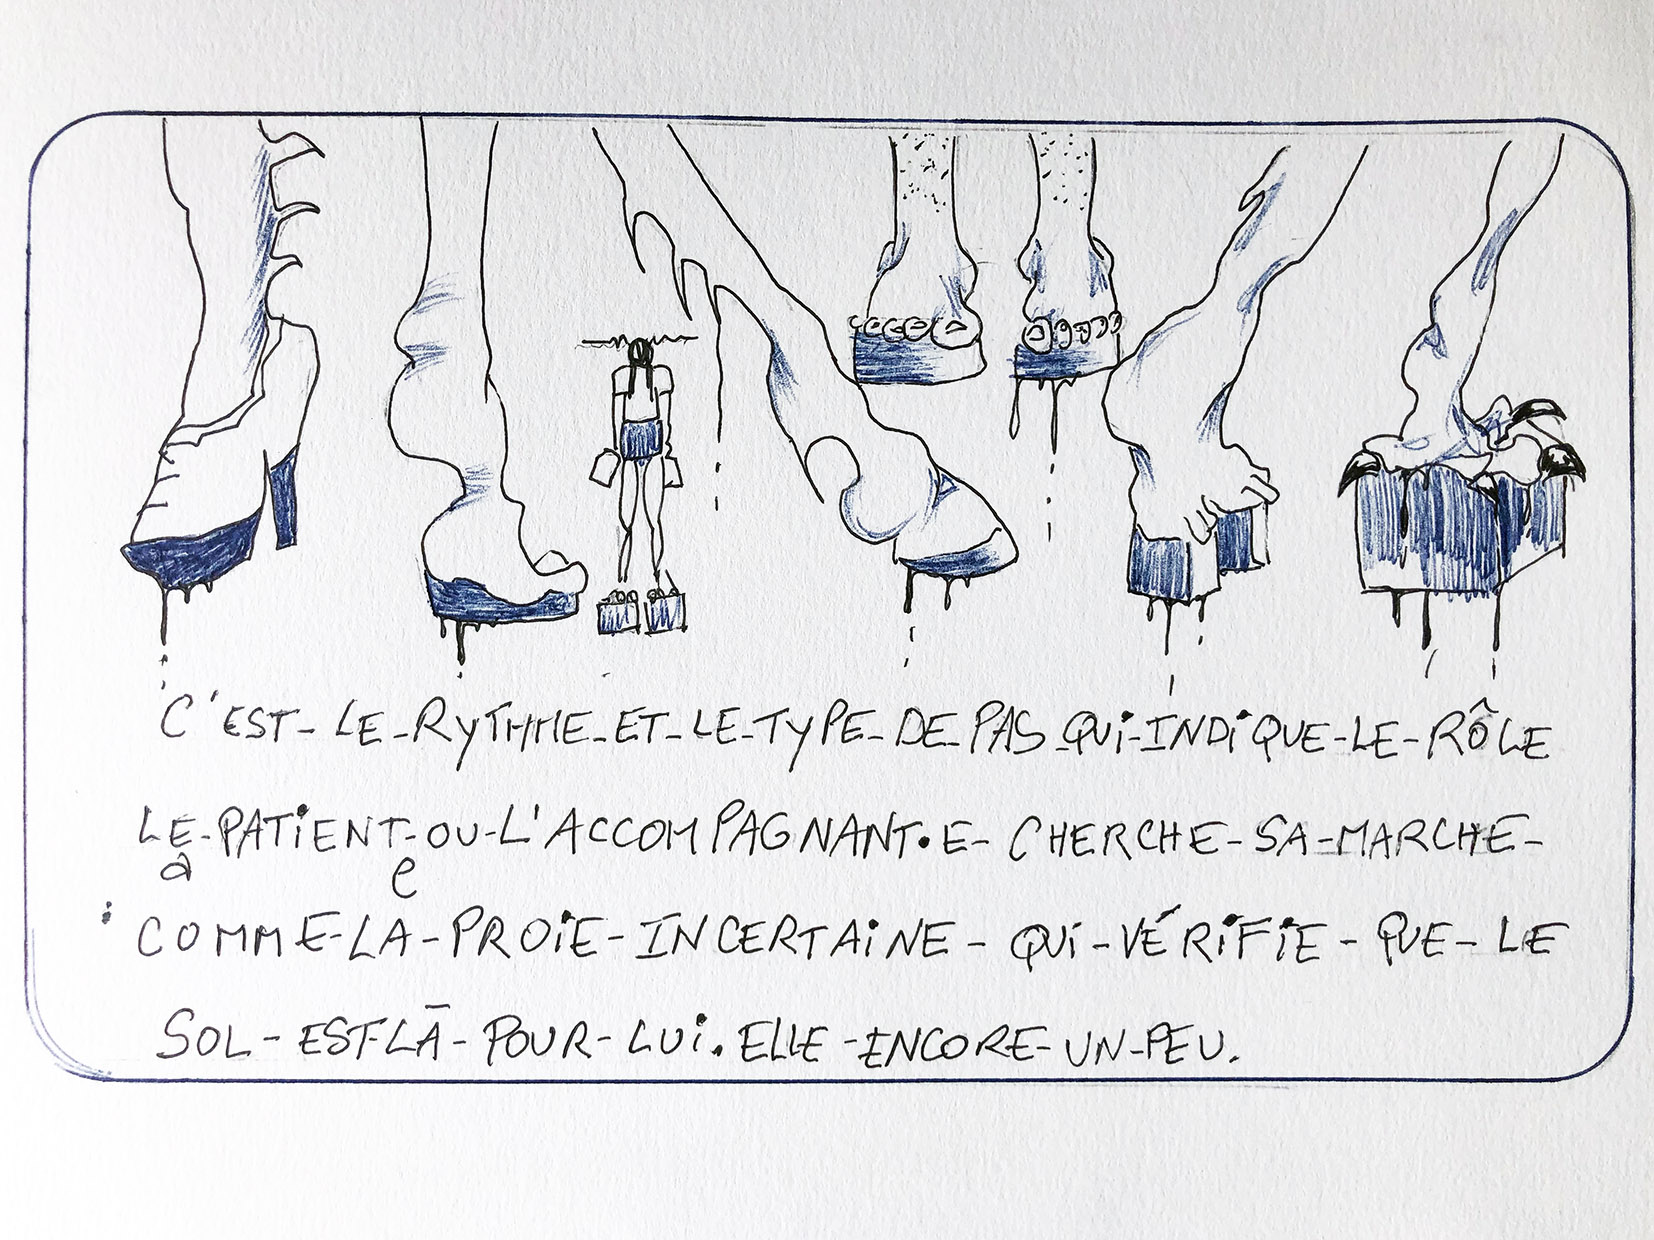 C'EST-LE-RYTHME-ET-LE-TYPE-DE-PAS-QUI-INDIQUE-LE-RÔLE
LE-PATIENT-OU-L'ACCOMPAGNANT•E-CHERCHE-SA-MARCHE-
a e
COMME-LA-PROIE-INCERTAINE-QUI-VÉRIFIE-QUE-LE
SOL-EST-LĀ-POUR-LUI.ELLE-ENCORE-UN-PEU.